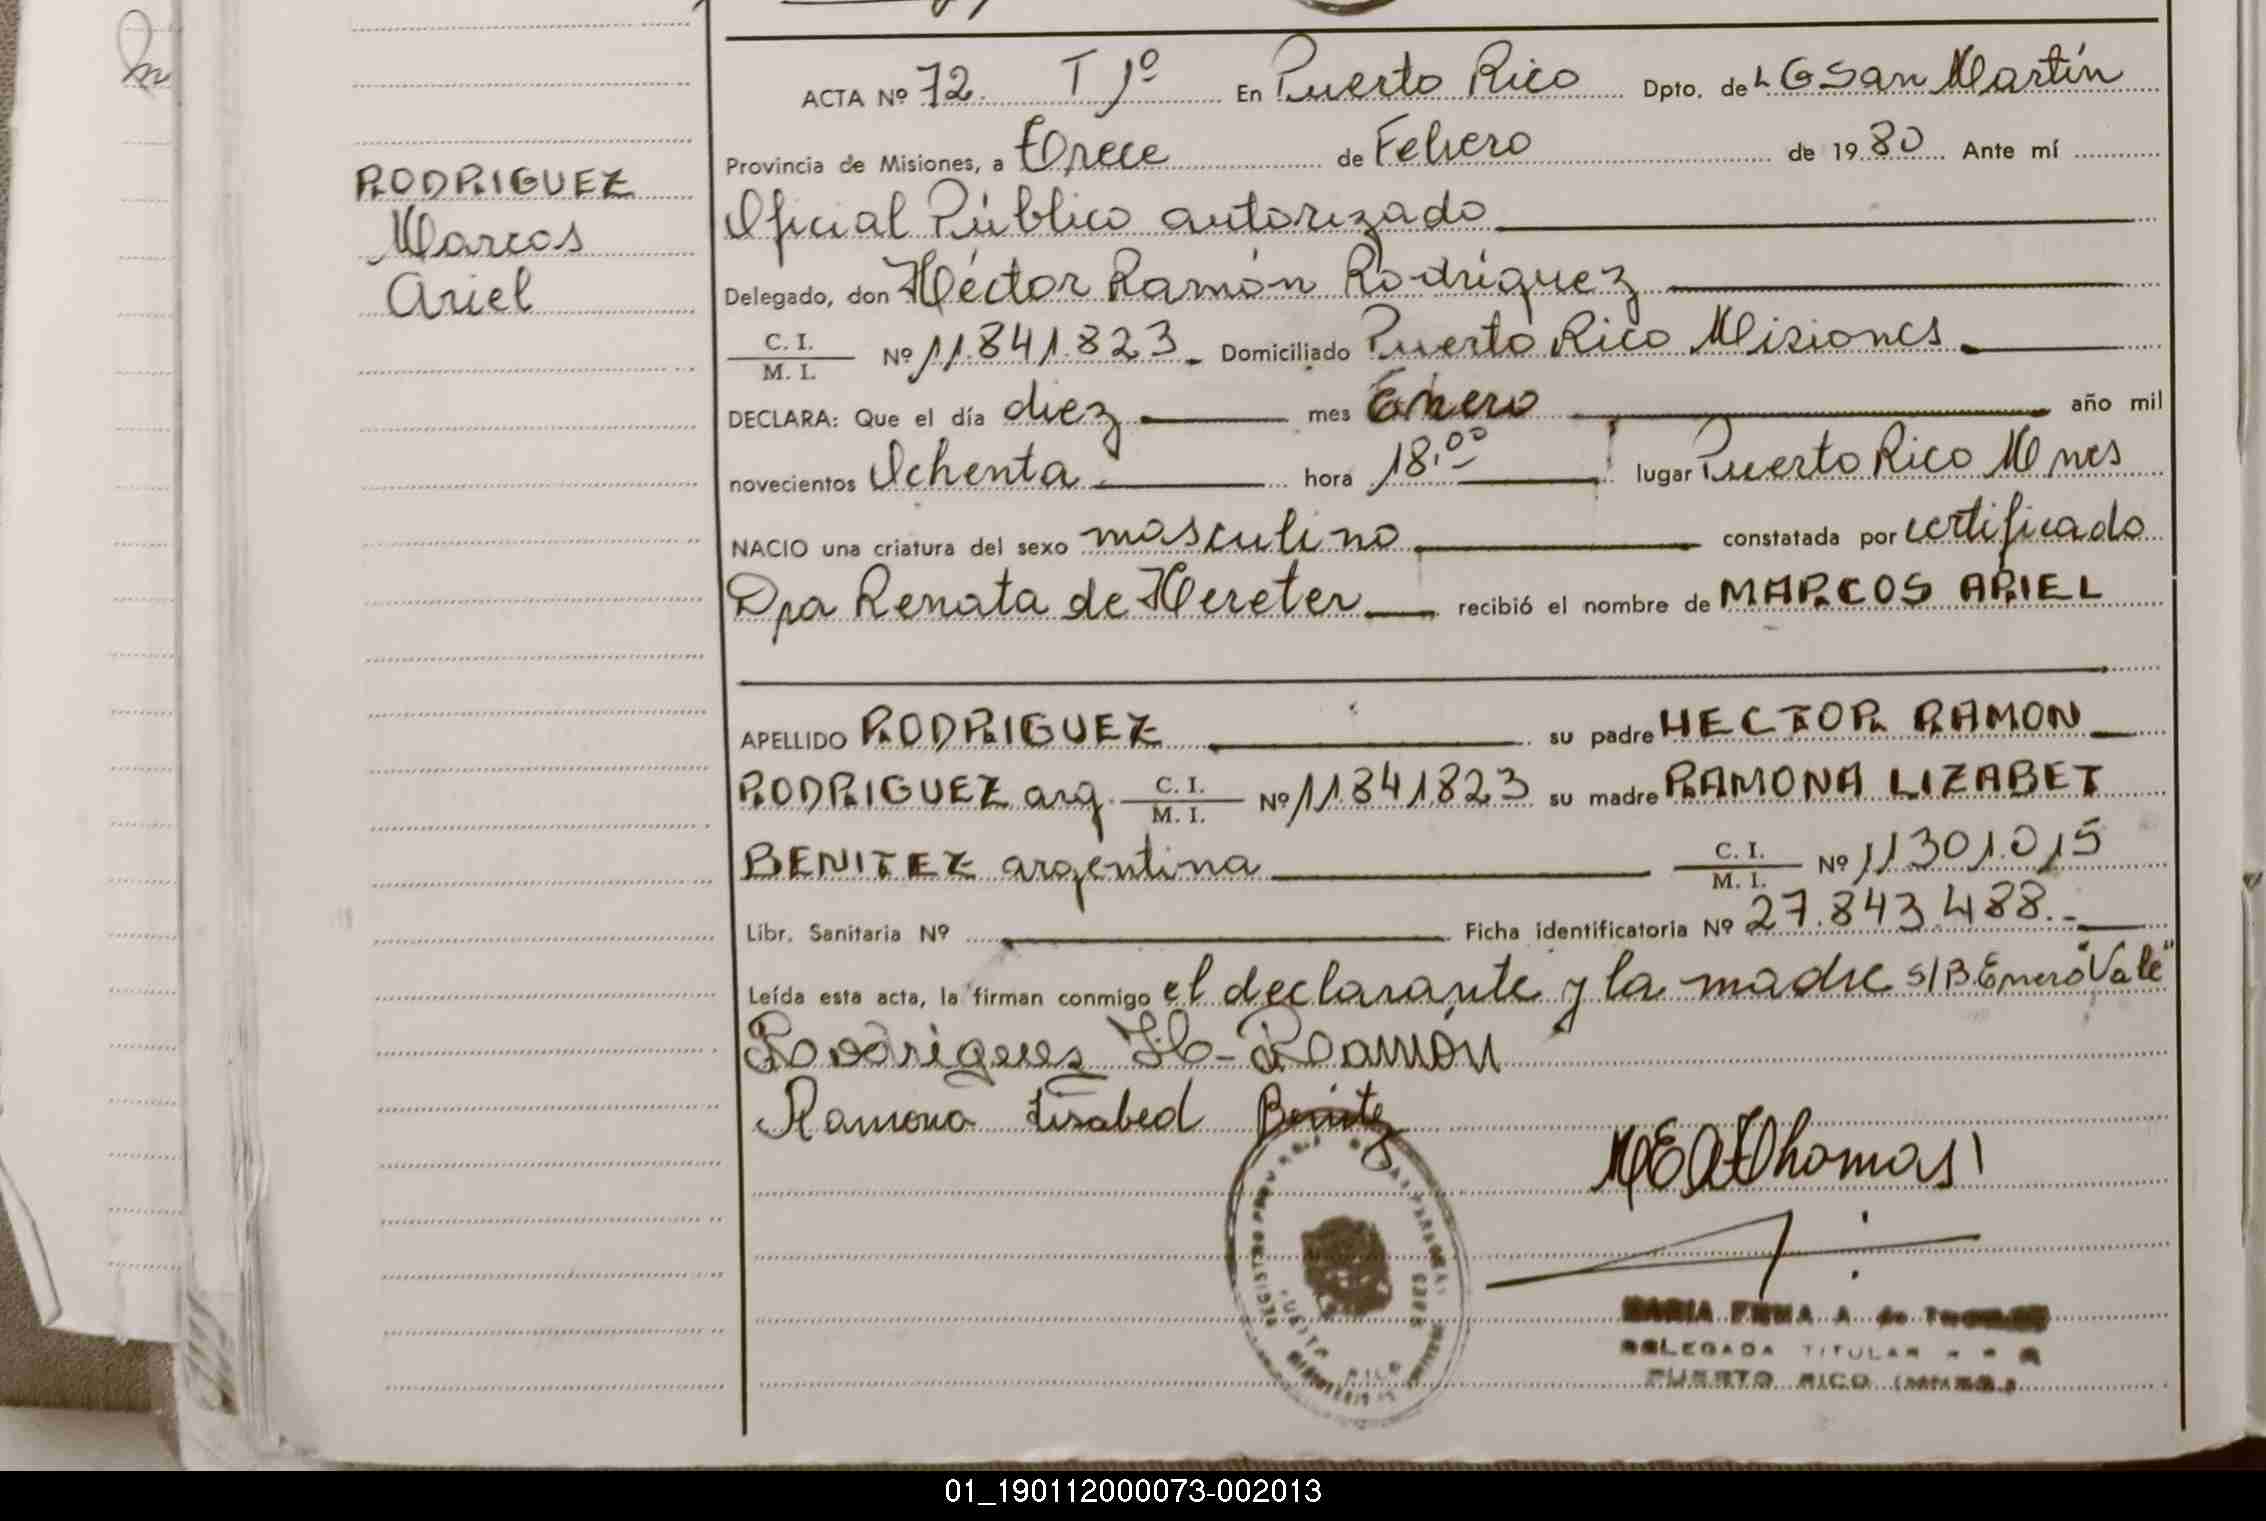 RODRIGUEZ
Marcos
Ariel
ACTA Nº 72. T 1º En Puerto Rico Dpto. de L G San Martín
Provincia de Misiones, a Trece de Febrero de 1980 Ante mí
Oficial Público autorizado
Delegado, don Héctor Ramón Rodríguez
C. I.
M. I. Nº 11.841.823 Domiciliado Puerto Rico Misiones
DECLARA: Que el día diez mes Enero año mil
novecientos Ochenta hora 18.00 lugar Puerto Rico Mnes
NACIO una criatura del sexo masculino constatada por certificado
Dra Renata de Hereter recibió el nombre de MARCOS ARIEL
APELLIDO RODRIGUEZ su padre HECTOR RAMON
RODRIGUEZ arg. C. I. M. I. Nº 11.841.823 su madre RAMONA LIZABET
BENITEZ argentina C. I. M. I. Nº 11301.015
Libr. Sanitaria Nº Ficha identificatoria Nº 27.843.488.-
Leída esta acta, la firman conmigo el declarante y la madre S/B. Enero "Vale"
Rodrigues H- Ramón
Ramona Lisabed Benitez
MEA Thomas
MARIA EMMA A. de
DELEGADA TITULAR
PUERTO RICO (MNES.)
REGISTRO PROV
PUERTO RICO
01_190112000073-002013